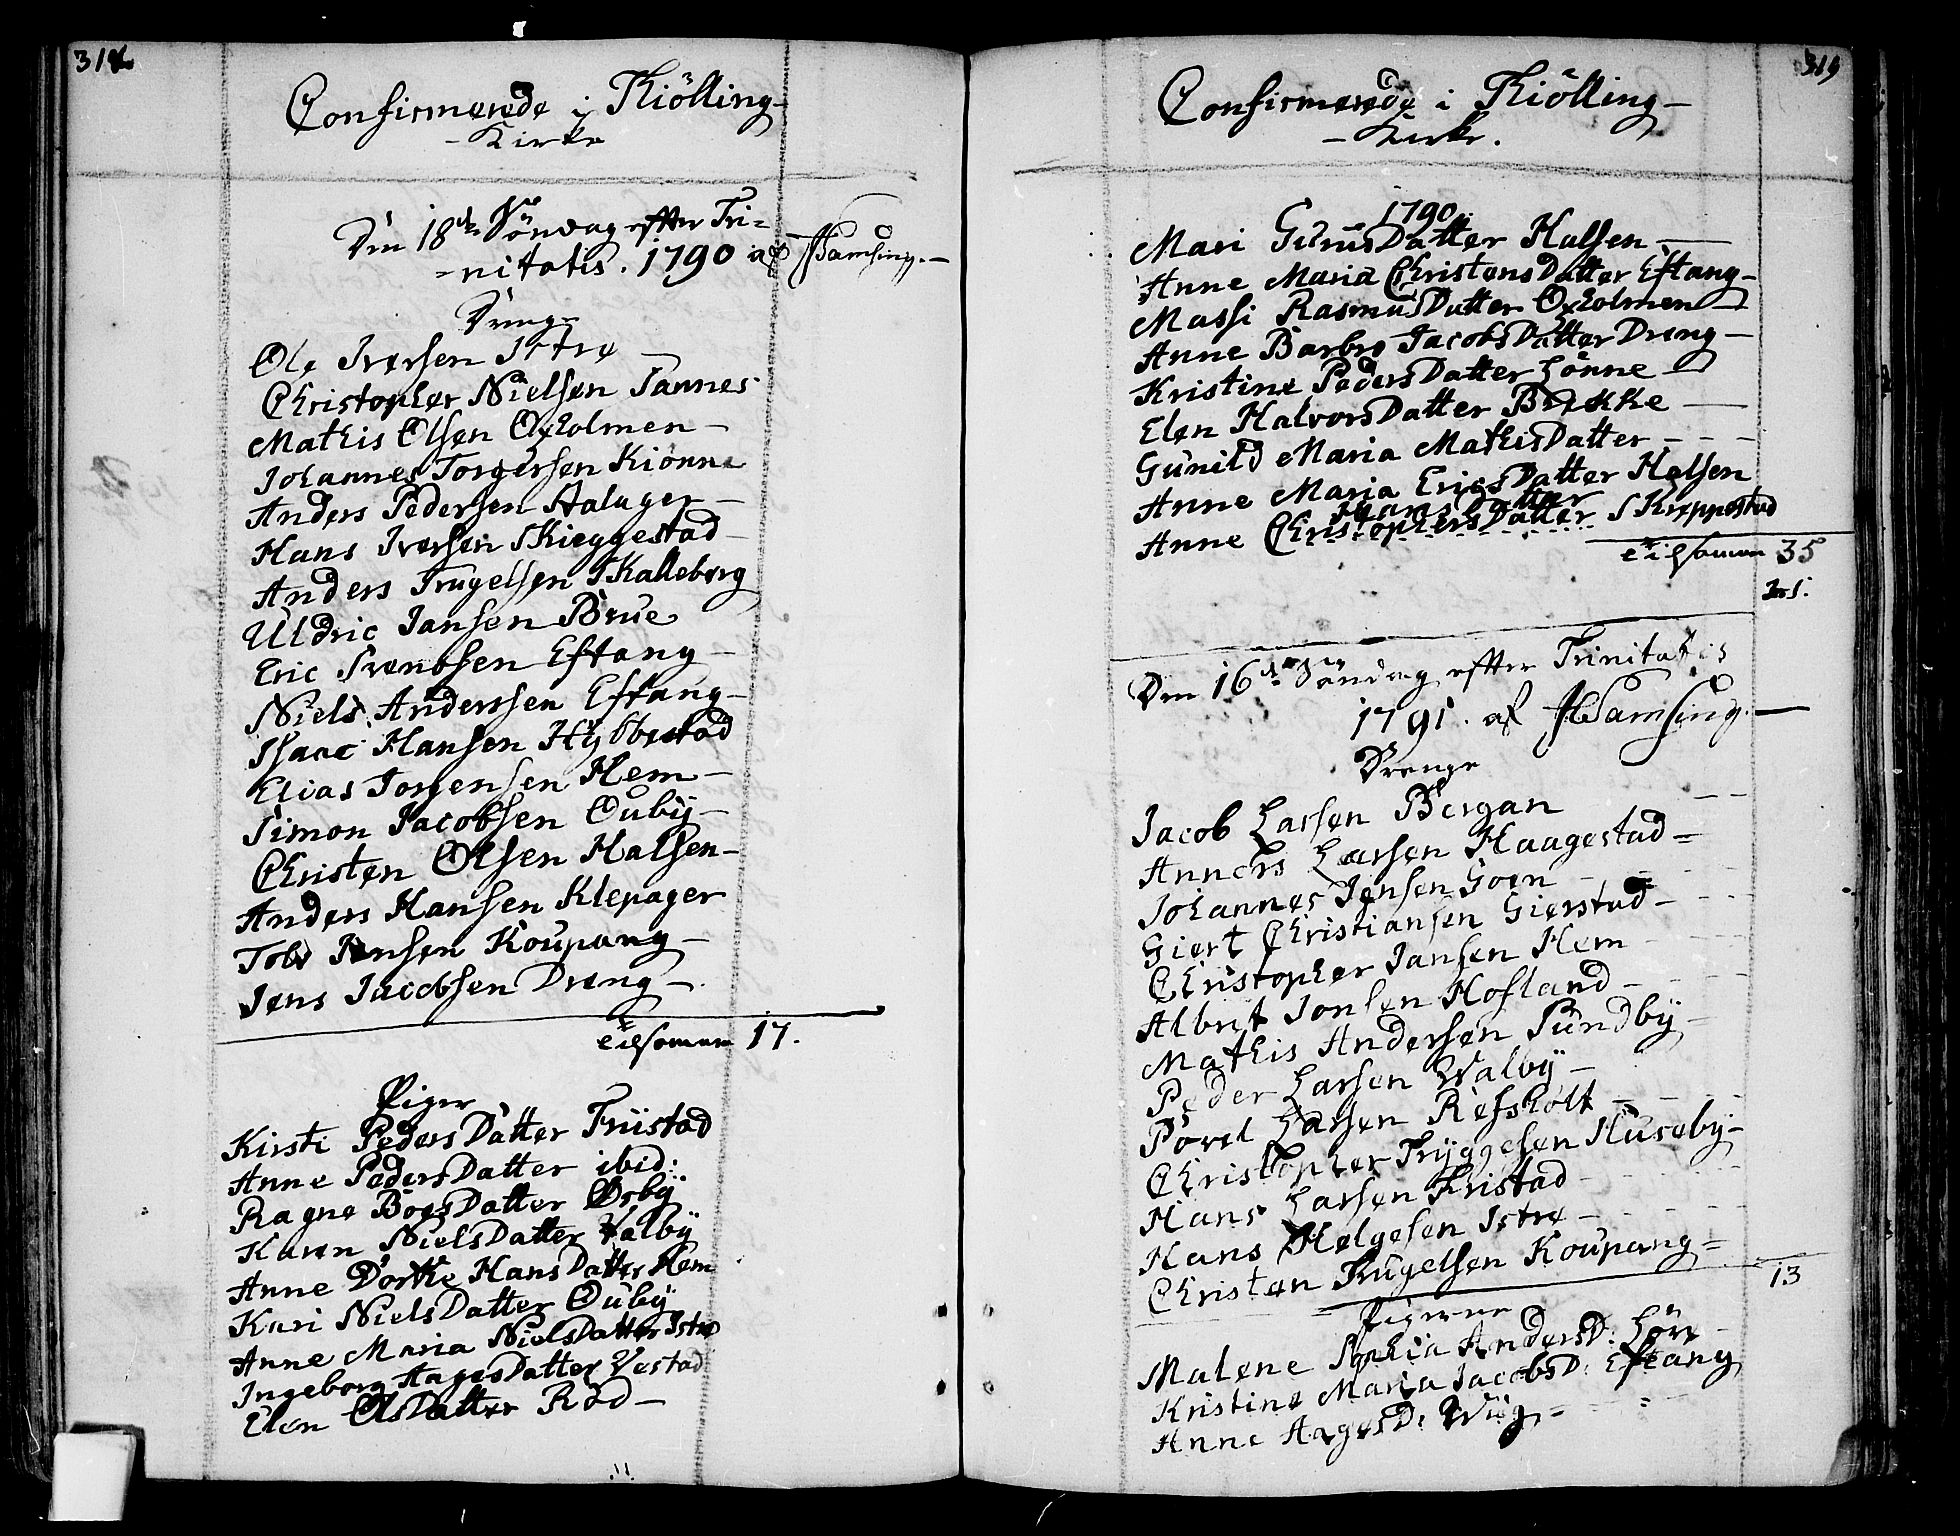 318
Confirmerede i Thiölling
- Kirke
Den 18de Söndag efter Tri=
=nitatis. 1790 af HSamsing. -
Drenge
Ole Iversen Istre -
Christopher Nielsen Sannes
Mathis Olsen Oxholmen -
Johannes Torgersen Kiönne
Anders Pedersen Aaluger -
Hans Iversen Skieggestad -
Anders Trugelsen Skalleberg
Uldric Jansen Brue
Eric Svendsen Eftang -
Niels Anderssen Eftang -
Isaac Hansen Hybbestad
Elias Jorgensen Hem -
Simon Jacobsen Ouby -
Christen Olsen Halsen -
Anders Hansen Klepager
Jensen Koupang -
Jens Jacobsen Dreng -
tilsamen 17.
Piger
Kirsti PedersDatter Fristad
Anne PedersDatter ibid:
Ragne BoesDatter Ørby
Karen NielsDatter Valby
Anne Dorthe HansDatter Hem
Kari NielsDatter Ouby
Anne Maria NielsDatter Istre
Ingeborg AagesDatter Vestad
Elen OlsDatter Röd -
319
Confirmerede i Thiölling -
- Kirke.
1790.
Mari GurusDatter Halsen -
Anne Maria ChristensDatter Eftang -
Massi RasmusDatter Oxholmen -
Anne Barbro JacobsDatter Dreng -
Kristine PedersDatter Lönne -
Elen HalvorsDatter Brekke -
Gunild Maria MathisDatter - - -
Anne Maria EricsDatter Halsen
HansDatter
Anne ChristophersDatter Skreppestad
tilsamen 35
Den 16de Söndag efter Trinitatis
1791. af HSamsing. -
Drenge
Jacob Larsen Bergan
Anners Larsen Haagestad =
Johannes Jensen Goen - - -
Giert Christiansen Gierstad - - -
Christopher Jansen Hem - -
Albret Jonsen Hofland - - -
Mathis Andersen Sundby -
Peder Larsen Walby -
Povel Larsen Refsholt - - -
Christopher Tryggesen Huseby -
Hans Larsen Fristad - - -
Hans Helgesen Istre - - - -
Christen Trugelsen Koupang =
13
Pigerne
Malene Sophia AndersD: Löve -
Kristine Maria JacobsD: Eftang
Anne AagesD: Wiig =